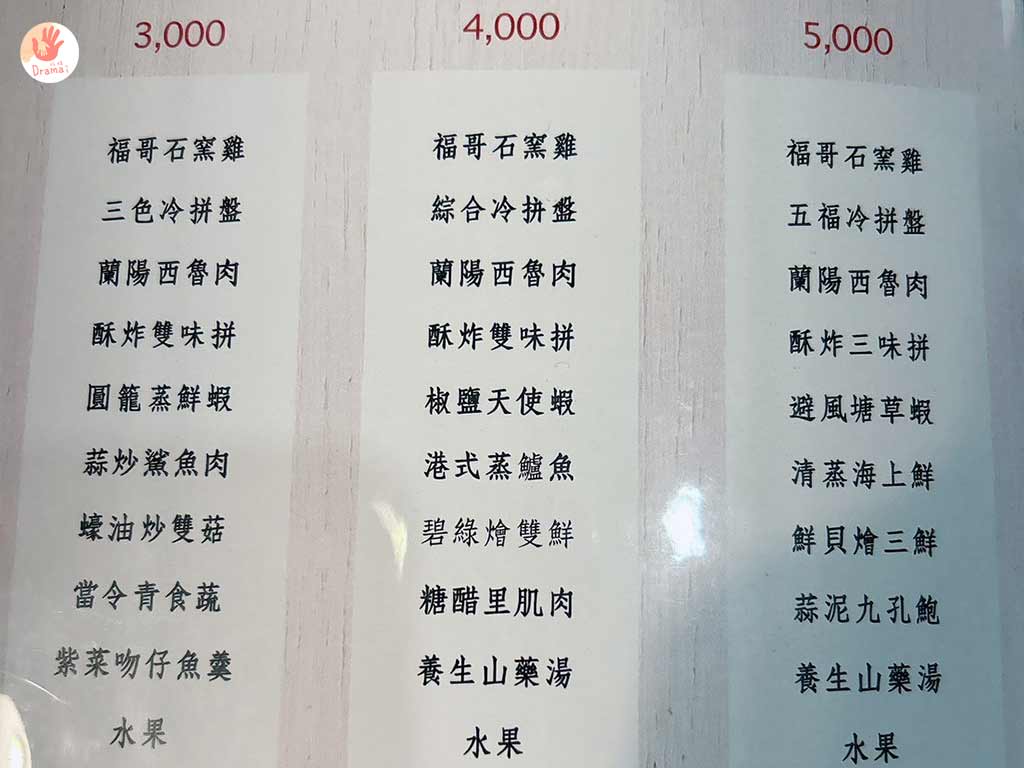 Dramai
3,000
福哥石窯雞
三色冷拼盤
蘭陽西魯肉
酥炸雙味拼
圓籠蒸鮮蝦
蒜炒鯊魚肉
蠔油炒雙菇
當令青食蔬
紫菜吻仔魚羹
水果
4,000
福哥石窯雞
綜合冷拼盤
蘭陽西魯肉
酥炸雙味拼
椒鹽天使蝦
港式蒸鱸魚
碧綠燴雙鮮
糖醋里肌肉
養生山藥湯
水果
5,000
福哥石窯雞
五福冷拼盤
蘭陽西魯肉
酥炸三味拼
避風塘草蝦
清蒸海上鮮
鮮貝燴三鮮
蒜泥九孔鮑
養生山藥湯
水果